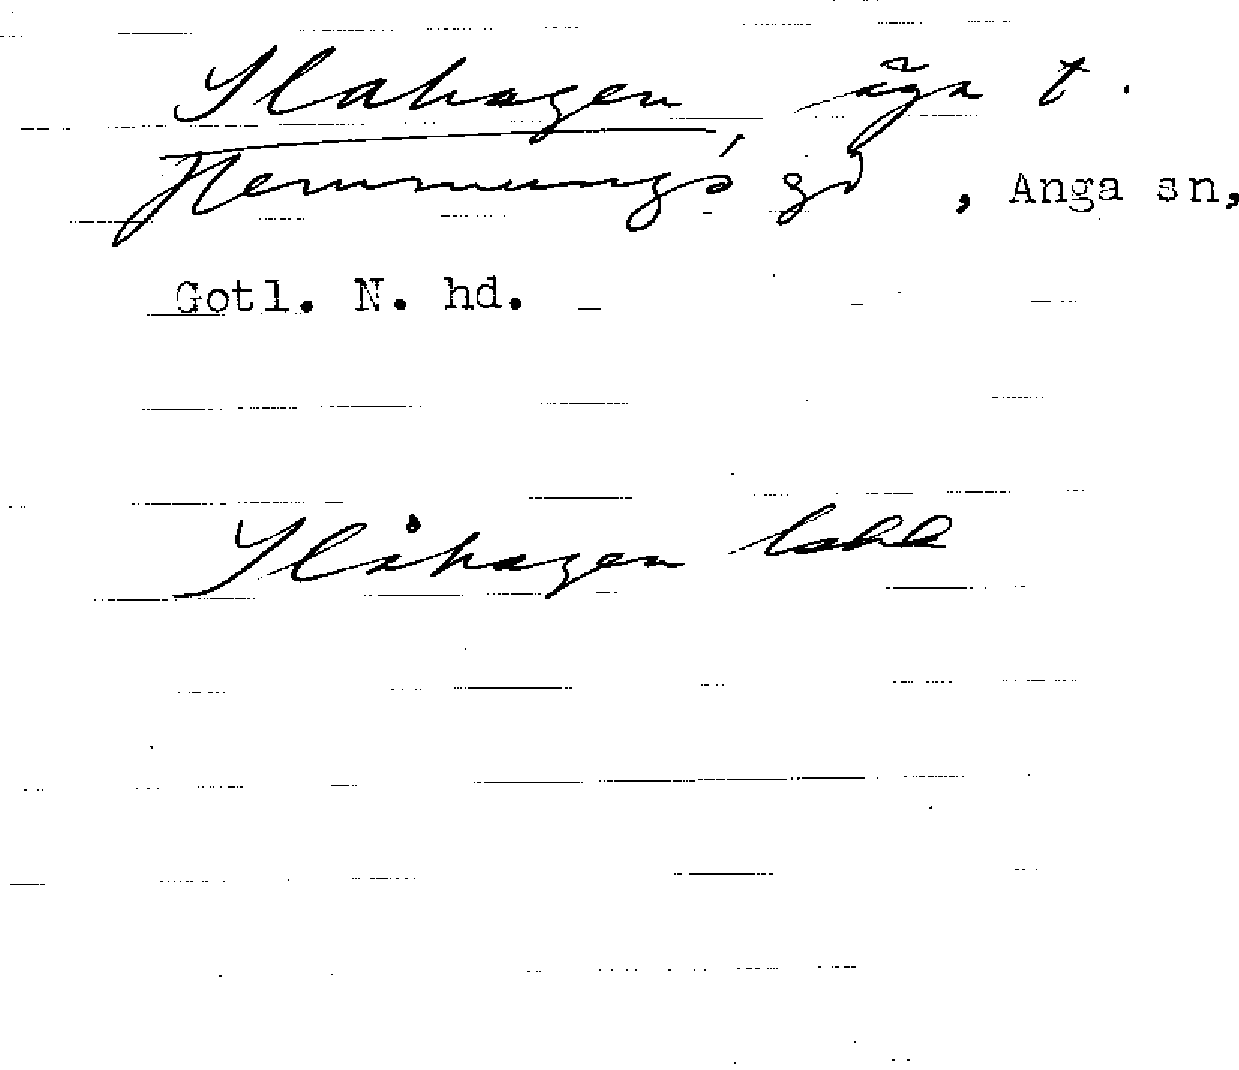 Slahagen äga t.
Hemmungs gd, Anga sn,
Gotl. N. hd.
Slåhagen